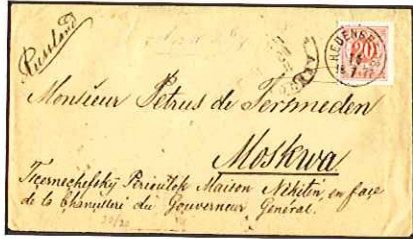 Russland
20
HEDENSET
7 77
Monsieur Petrus de Termeden
Moskwa
Tschernechefsky Périoulok Maison Nikitin, en face
de la Chancellerie du Gouverneur Général.